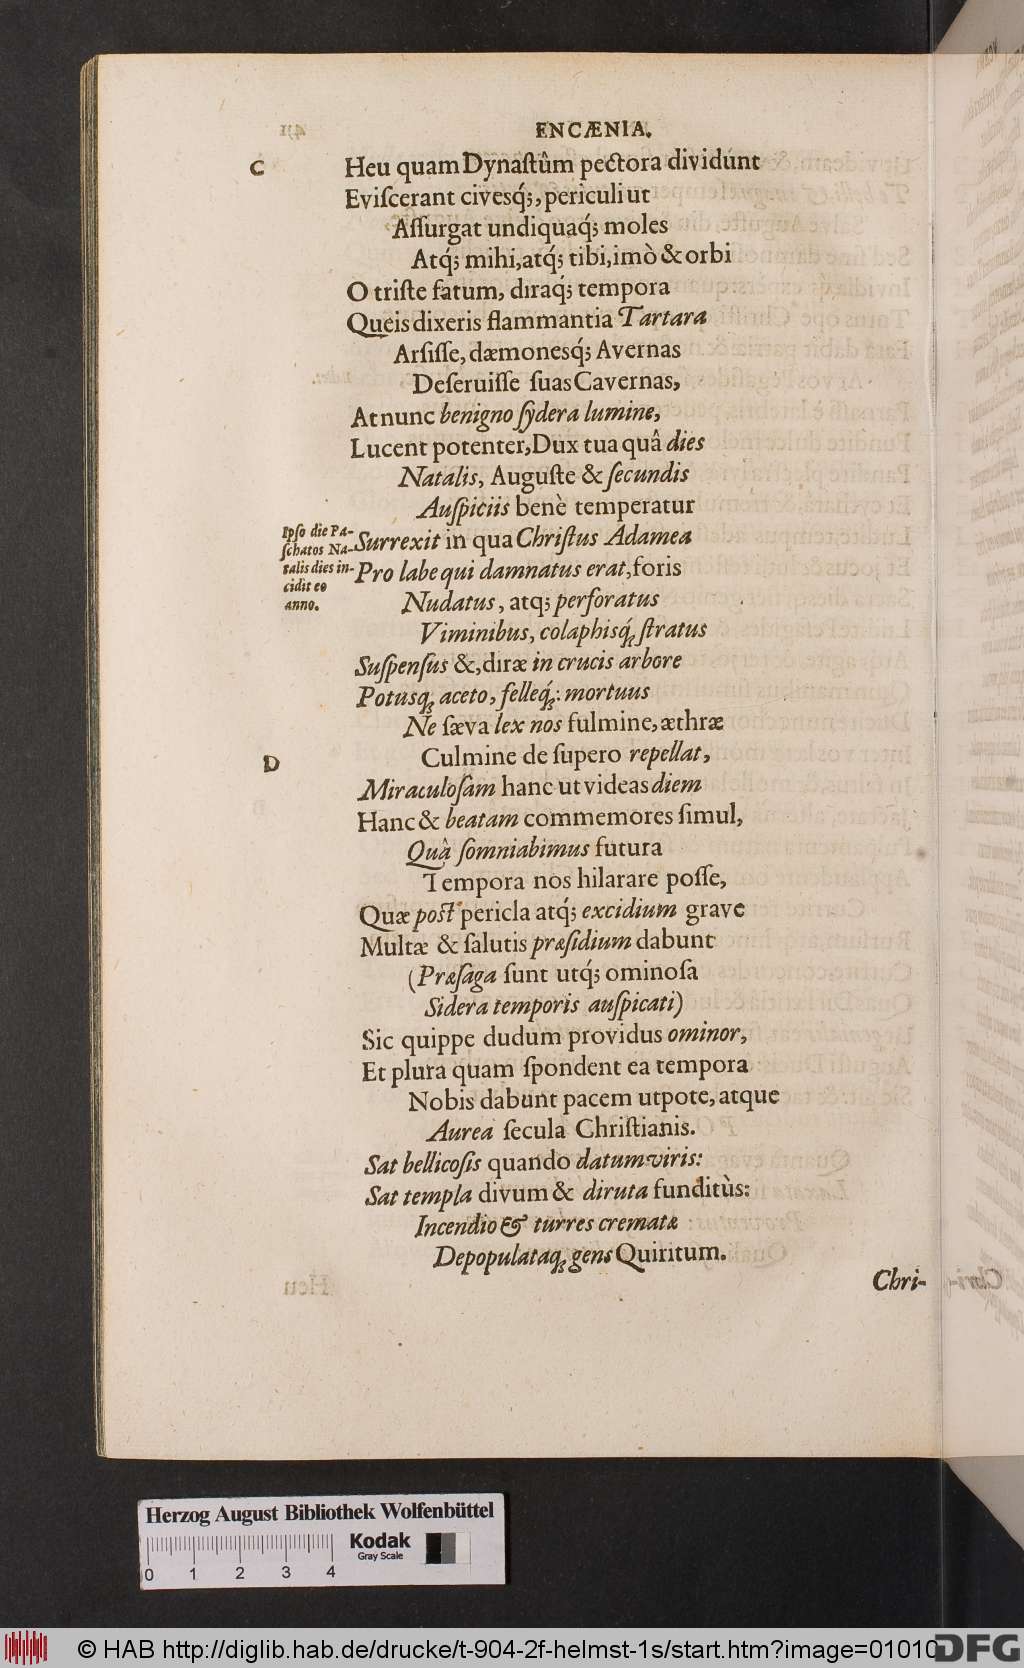 ENCÆNIA.
C
Heu quam Dynaſtûm pectora dividunt
Eviſcerant civesq́;, periculi ut
Aſſurgat undiquaq́; moles
Atq́; mihi, atq́; tibi, imò & orbi
O triſte fatum, diraq́; tempora
Queis dixeris flammantia Tartara
Arſiſſe, dæmonesq́; Avernas
Deſeruiſſe ſuas Cavernas,
At nunc benigno ſydera lumine,
Lucent potenter, Dux tua quâ dies
Natalis, Auguſte & ſecundis
Auſpiciis benè temperatur
Ipſo die Pa-
ſchatos Na-
talis dies in-
cidit eo
anno.
Surrexit in qua Chriſtus Adamea
Pro labe qui damnatus erat, foris
Nudatus, atq; perforatus
Viminibus, colaphisq́; ſtratus
Suſpenſus &, diræ in crucis arbore
Potusq; aceto, felleq́;: mortuus
Ne ſæva lex nos fulmine, æthræ
Culmine de ſupero repellat,
D
Miraculoſam hanc ut videas diem
Hanc & beatam commemores ſimul,
Quâ ſomniabimus futura
Tempora nos hilarare poſſe,
Quæ poſt pericla atq́; excidium grave
Multæ & ſalutis præſidium dabunt
(Præſaga ſunt utq́; ominoſa
Sidera temporis auſpicati)
Sic quippe dudum providus ominor,
Et plura quam ſpondent ea tempora
Nobis dabunt pacem utpote, atque
Aurea ſecula Chriſtianis.
Sat bellicoſis quando datum viris:
Sat templa divum & diruta funditùs:
Incendio & turres crematæ
Depopulataq; gens Quiritum.
Chri-
Herzog August Bibliothek Wolfenbüttel
Kodak
Gray Scale
0 1 2 3 4
© HAB http://diglib.hab.de/drucke/t-904-2f-helmst-1s/start.htm?image=01010
DFG